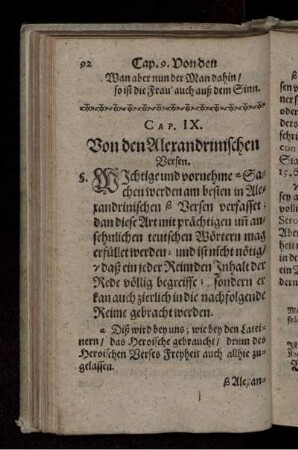 92 Cap. 9. Von den
Wan aber nun der Man dahin/
so ist die Frau auch auß dem Sinn.
CAP. IX.
Von den Alexandrinischen
Versen.
§. WIchtige und vornehme α Sa-
chen werden am besten in Ale-
xandrinischen β Versen verfasset:
dan diese Art mit prächtigen uñ an-
sehnlichen teutschen Wörtern mag
erfüllet werden: und ist nicht nötig/
γ daß ein jeder Reim den Inhalt der
Rede völlig begreiffe: sondern er
kan auch zierlich in die nachfolgende
Reime gebracht werden.
α Diß wird bey uns; wie bey den Latei-
nern/ das Heroische gebraucht/ drum des
Heroischen Verses Freyheit auch allhie zu-
gelassen.
β Alexan-